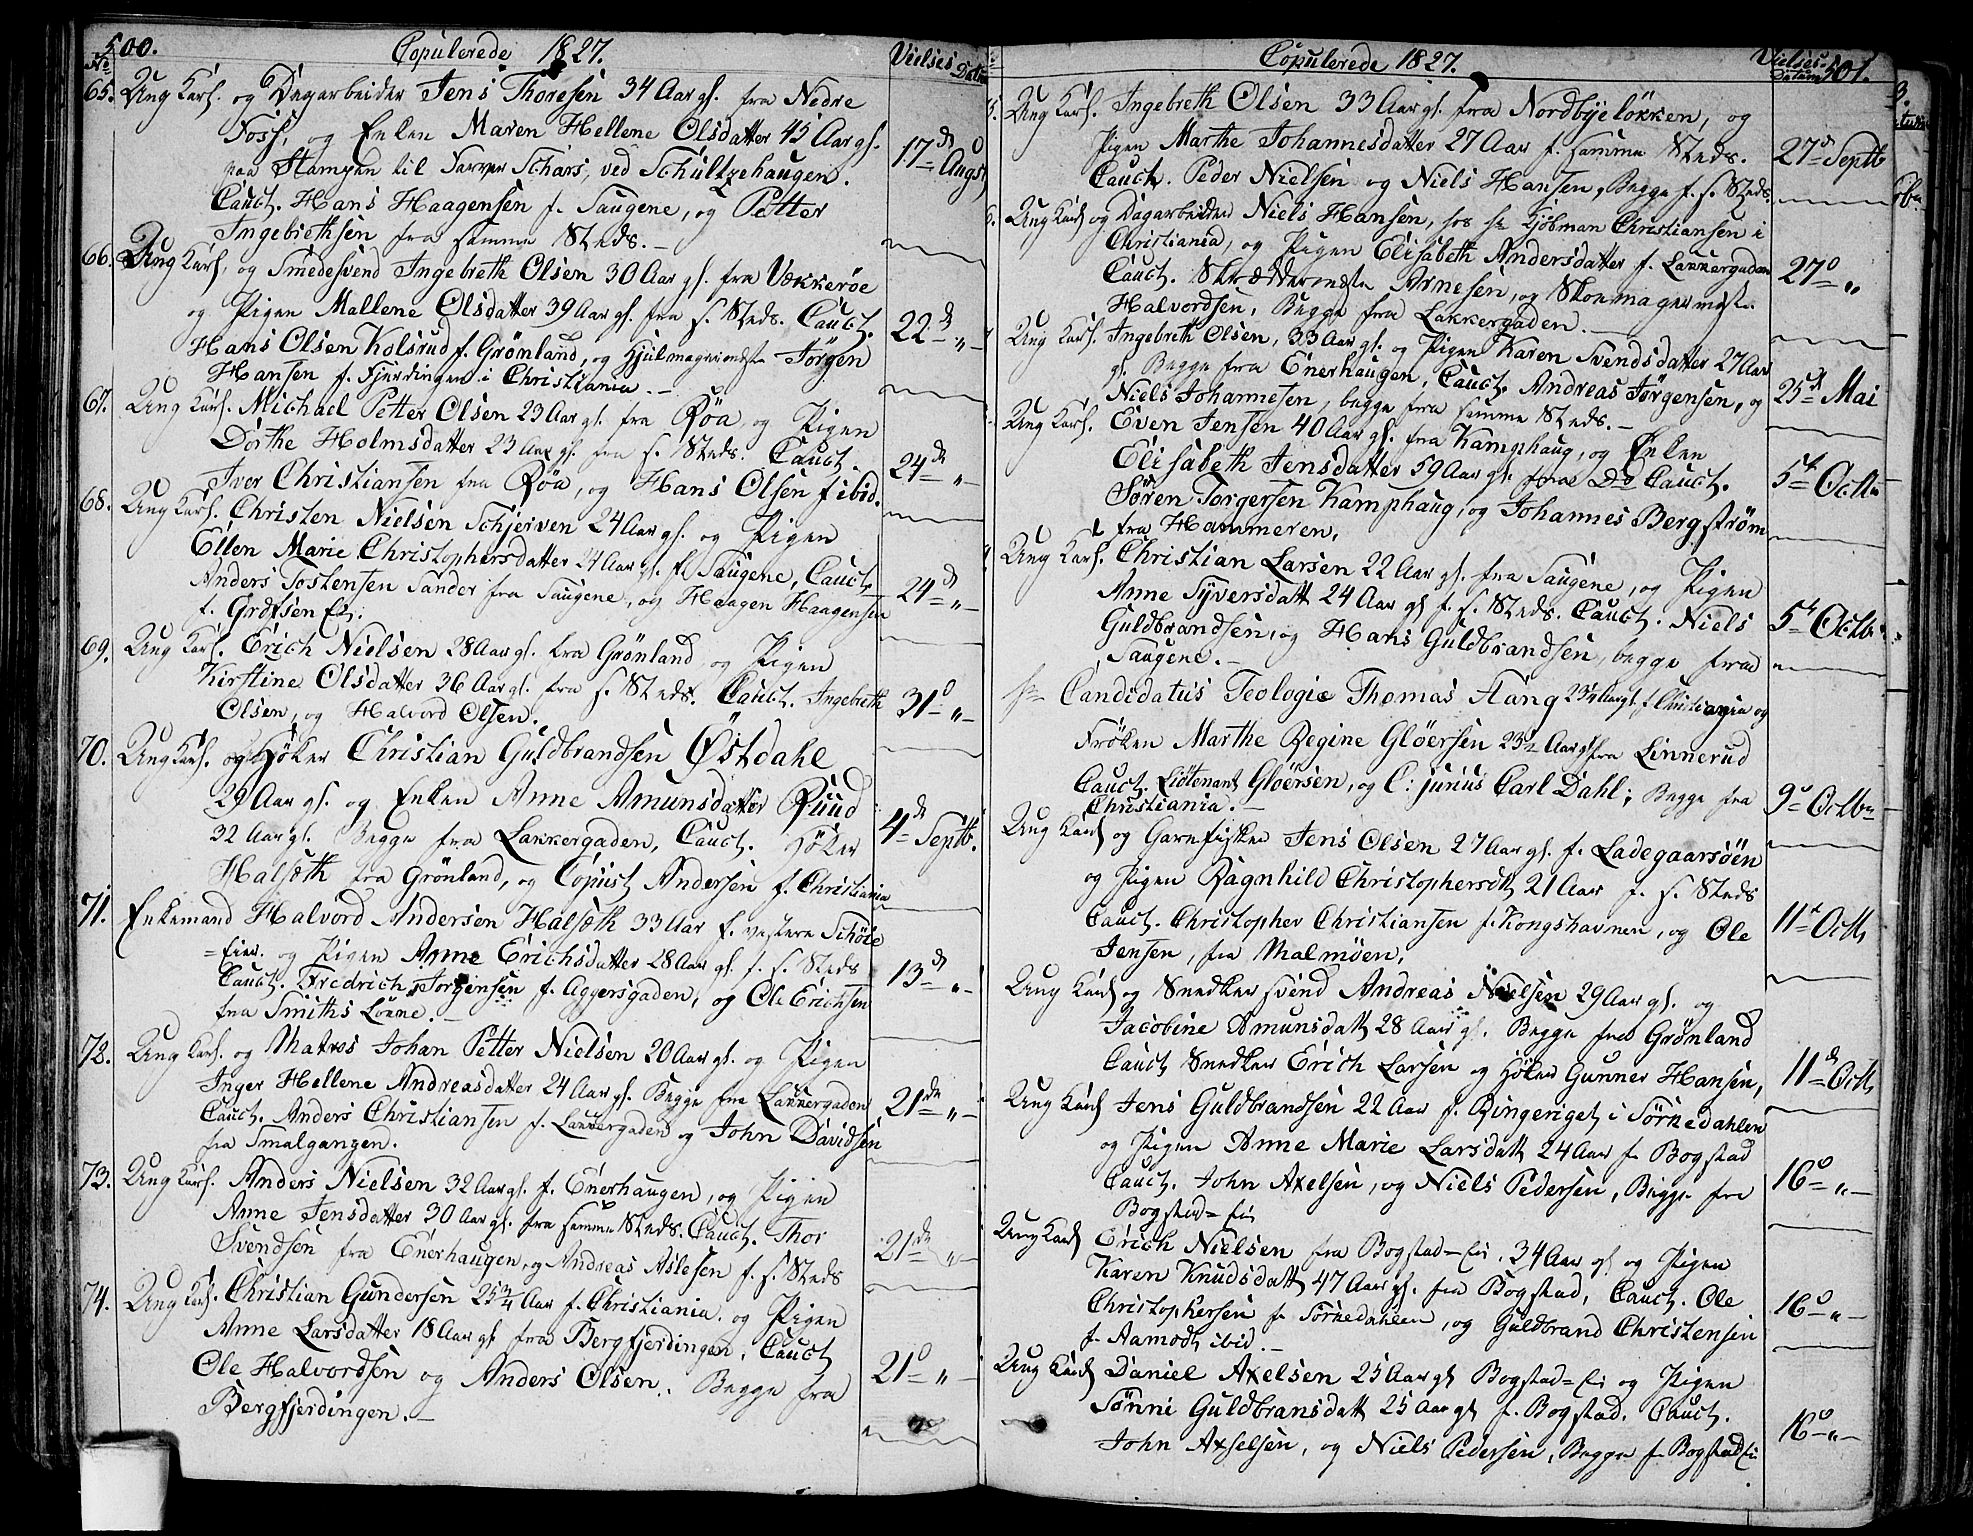 500.
Copulerede 1827.
Vielses Datum
No
65. Ung Karl. og Dagarbeider Jens Thoresen 34 Aar gl. fra Nedre
Foss, og Enken Maren Hellene Olsdatter 45 Aar gl.
paa Stampen til Farver Schars, ved Schultzehaugen.
Cauct. Hans Haagensen f. Saugene, og Petter
Ingebrethsen fra samme Steds.
17de Augst
66. Ung Karl, og Smedesvend Ingebreth Olsen 30 Aar gl. fra Vækkerøe
og Pigen Mallene Olsdatter 39 Aar gl. fra s. Steds. Cauct.
Hans Olsen Kolsrud f. Grönland, og Hjulmagersvend Jörgen
Hansen f. Fjerdingen i Christiania.
22de "
67. Ung Karl. Michael Petter Olsen 23 Aar gl. fra Röa, og Pigen
Dorthe Holmsdatter 23 Aar gl. fra s. Steds. Cauct.
Iver Christiansen fra Röa, og Hans Olsen f ibid.
24de "
68. Ung Karl. Christen Nielsen Schjerven 24 Aar gl. og Pigen
Ellen Marie Christophersdatter 24 Aar gl. f. Saugene, Cauct.
Anders Tostensen Sander fra Saugene, og Haagen Haagensen
f. Grefsen Ei.
24de "
69. Ung Karl. Erich Nielsen 28 Aar gl. fra Grönland og Pigen
Kirstine Olsdatter 36 Aar gl. fra s. Steds. Cauct. Ingebreth
Olsen, og Halvord Olsen.
31o "
70. Ung Karl. og Höker Christian Guldbrandsen Østdahl
29 Aar gl. og Enken Anne Amunsdatter Ruud
32 Aar gl. Begge fra Lakkergaden, Cauct. Höker
Halseth fra Grönland, og Copist Andersen f. Christiania
4de Septb.
71. Enkemand Halvord Andersen Halseth 33 Aar f. vestere Schöie
=Eier. og Pigen Anne Erichsdatter 28 Aar gl. f. s. Steds
Cauct. Fredrich Jorgensen f. Aggersgaden, og Ole Erichsen
fra Smiths Lönne.
13de "
72. Ung Karl. og Matros Johan Petter Nielsen 20 Aar gl. og Pigen
Inger Hellene Andreasdatter 24 Aar gl. Begge fra Lakkergaden
Cauct. Anders Christiansen f. Lakkergaden og John Davidsen
fra Smalgangen.
21de "
73. Ung Karl. Anders Nielsen 32 Aar gl. f. Enerhaugen, og Pigen
Anne Jensdatter 30 Aar gl. fra samme Steds. Cauct. Thor
Svendsen fra Enerhaugen, og Andreas Aslesen f. s. Steds
21de "
74. Ung Karl. Christian Gundersen 25 3/4 Aar f. Christiania. og Pigen
Anne Larsdatter 18 Aar gl. fra Bergfjerdingen, Cauct
Ole Halvordsen og Anders Olsen. Begge fra
Bergfjerdingen.
21o "
Copulerede 1827.
Vielses Datum
501.
5. Ung Karl. Ingebreth Olsen 33 Aar gl. fra Nordbyelökken, og
Pigen Marthe Johannesdatter 27 Aar f. samme Steds.
Cauct. Peder Nielsen og Niels Hansen, Begge f. s. Steds
27de Septb
6. Ung Karl og Dagarbeider Niels Hansen, hos Hr Kjöbman Christiansen i
Christiania, og Pigen Elisabeth Andersdatter f. Lakkergaden
Cauct. Skræddermester Arnesen, og Skomagermester
Halvordsen, Begge fra Lakkergaden.
27o "
7 Ung Karl. Ingebreth Olsen, 33 Aar gl. og Pigen Karen Svendsdatter 27 Aar
gl. Begge fra Enerhaugen, Cauct. Andreas Jörgensen, og
Niels Johannesen, begge fra samme Steds.
25de Mai
Ung Karl. Even Jensen 40 Aar gl. fra Kamphaug, og Enken
Elisabeth Jensdatter 59 Aar gl. fra Do Cauct.
Sören Torgersen Kamphaug, og Johannes Bergström
fra Hammeren.
5te Octb
9 Ung Karl. Christian Larsen 22 Aar gl. fra Saugene, og Pigen
Anne Syversdatt 24 Aar gl f. s. Steds. Cauct. Niels
Guldbrandsen, og Hans Guldbrandsen, begge fra
Saugene.
5te Octb
Hr Candidatus Teologie Thomas Stang 23 1/4 Aar gl. f Christiania og
Fröken Marthe Regine Glöersen 23 1/2 Aar gl fra Linnerud
Cauct. Liötenant Glöersen, og C: junius Carl Dahl; Begge fra
Christiania.
9o Octb
Ung Karl og Garnfisker Jens Olsen 27 Aar gl. f. Ladegaarsöen
og Pigen Ragnhild Christophersdt 21 Aar f. s. Steds
Cauct. Christopher Christiansen f. Kongshavnen, og Ole
Jensen, fra Malmöen.
11te Octb
Ung Karl og Snedkersvend Andreas Nielsen 29 Aar gl. og
Jacobine Amunsdatt 28 Aar gl. Begge fra Grönland
Cauct Snedker Erich Larsen og Höker Gunner Hansen,
11de Octb
Ung Karl Jens Guldbrandsen 22 Aar f. Ringeriget i Sörkedahlen
og Pigen Anne Marie Larsdatt 24 Aar f. Bogstad
Cauct. John Axelsen, og Niels Pedersen, Begge fra
Bogstad=Ei
16o "
Ung Karl Erich Nielsen fra Bogstad=Ei. 34 Aar gl og Pigen
Karen Knudsdatt 47 Aar gl. fra Bogstad, Cauct. Ole
Christophersen f. Sörkedahlen, og Guldbrand Christensen
f. Aamodt ibid.
16o "
Ung Karl Daniel Axelsen 25 Aar gl Bogstad=Ei og Pigen
Sönni Guldbransdatt 25 Aar gl f. Bogstad. Cauct.
John Axselsen, og Niels Pedersen, Begge f. Bogstad Ei
16o "